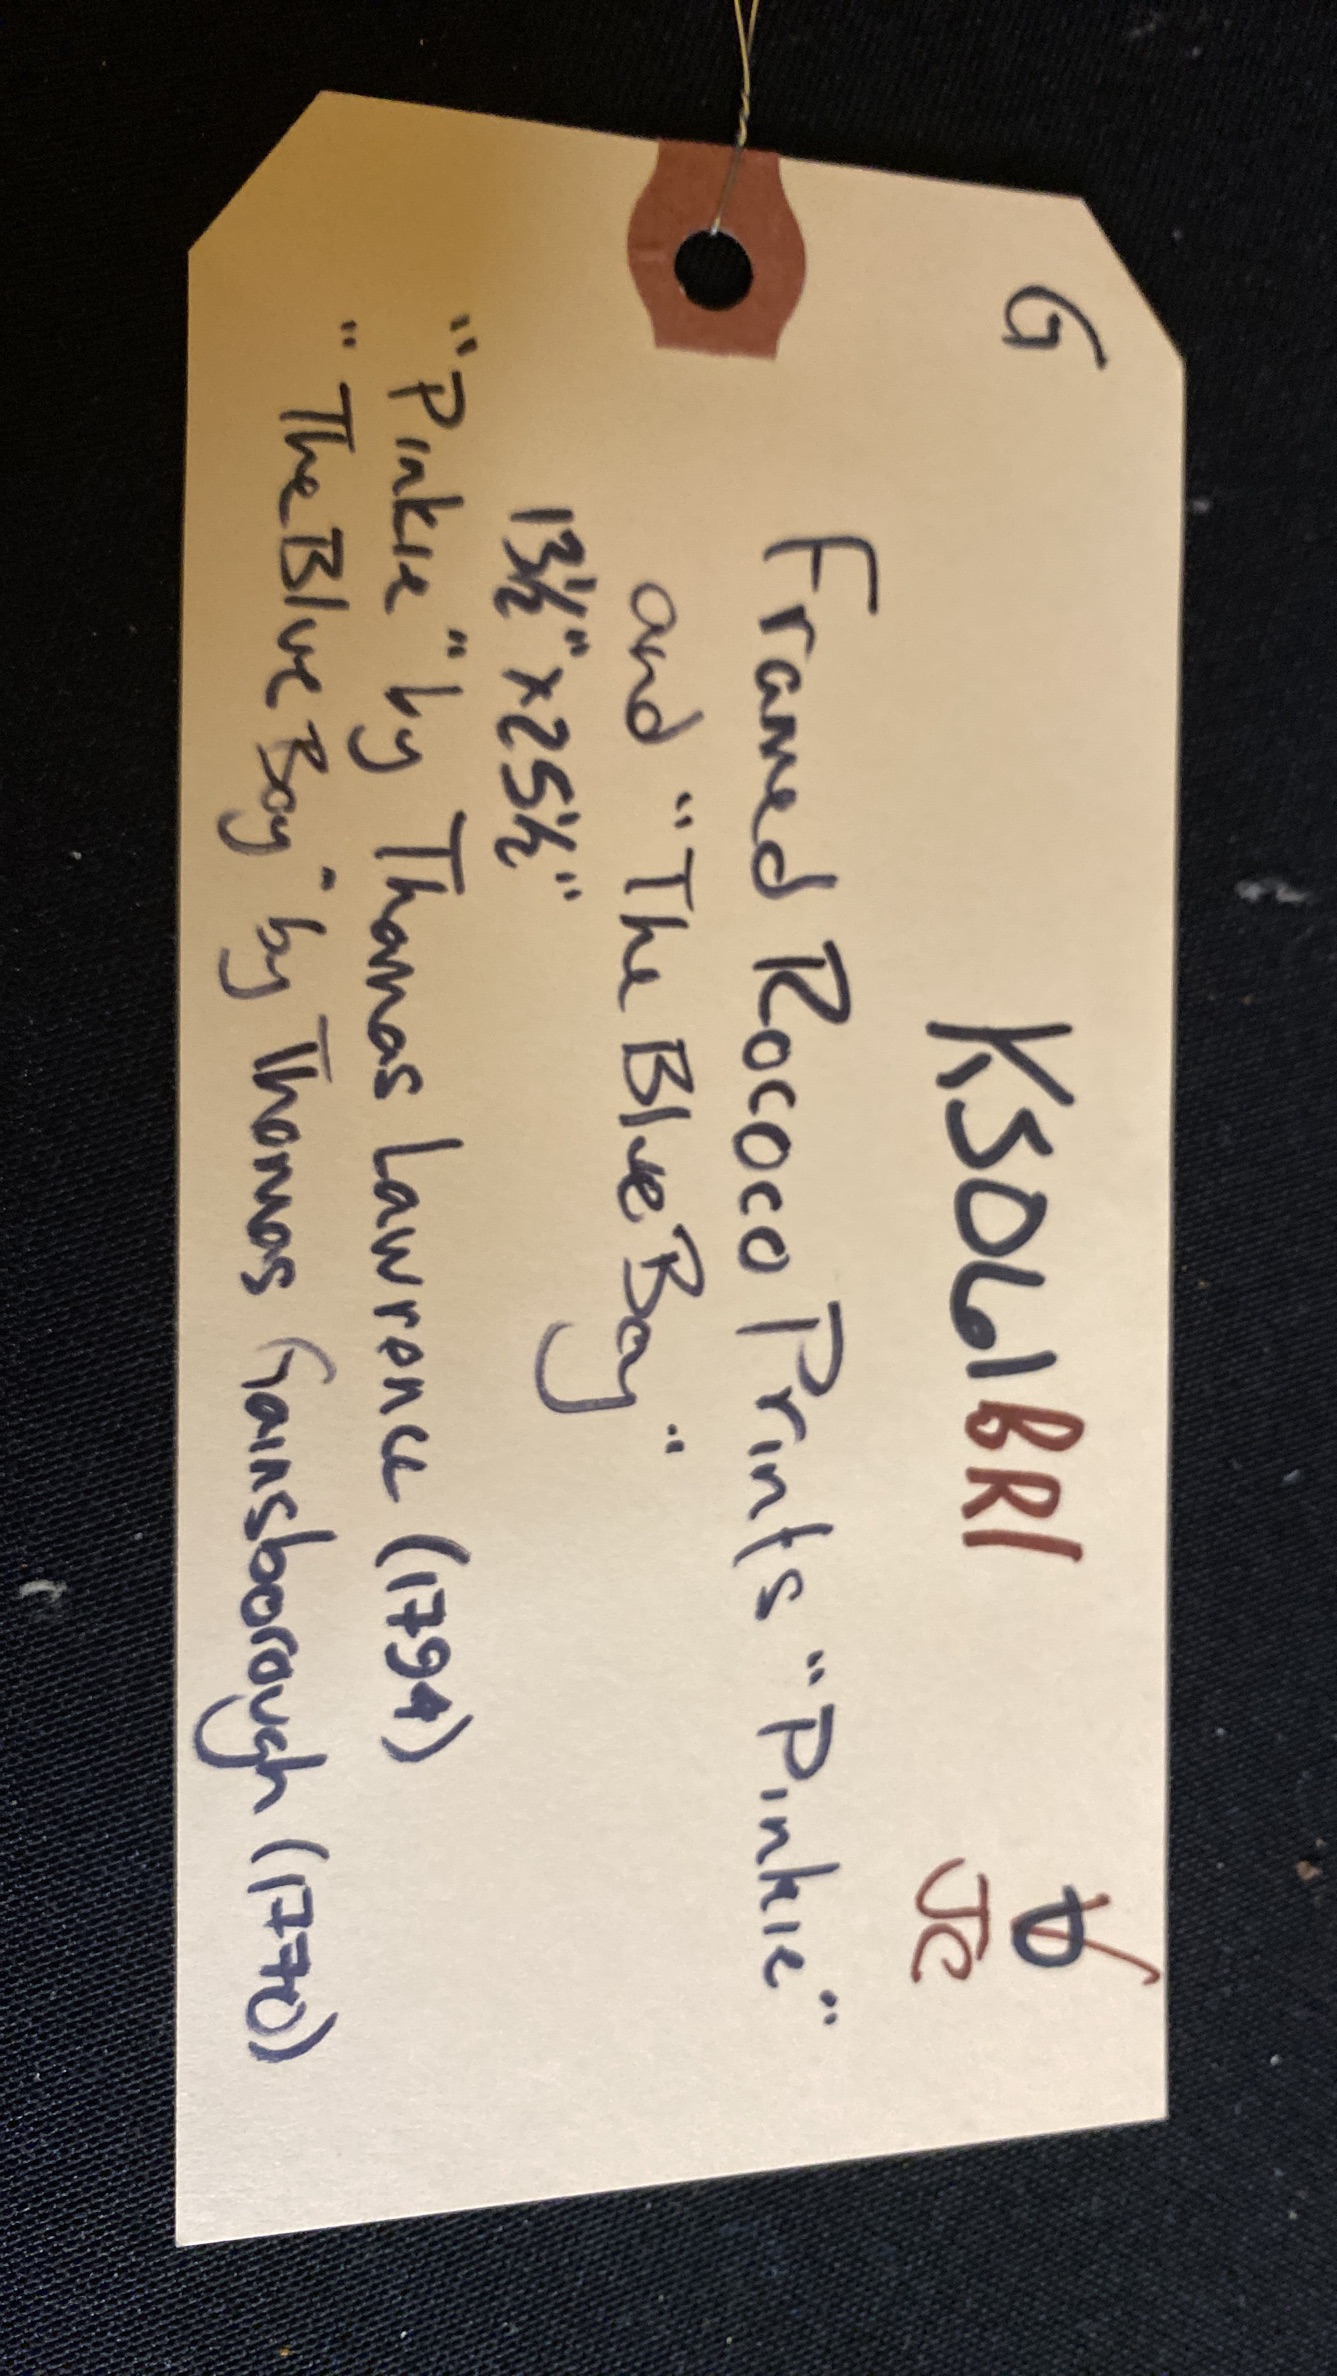 G KS061BR1 D
JC
Framed Rococo Prints "Pinkie"
and "The Blue Boy"
13½" x 25½"
"Pinkie" by Thomas Lawrence (1794)
"The Blue Boy" by Thomas Gainsborough (1770)